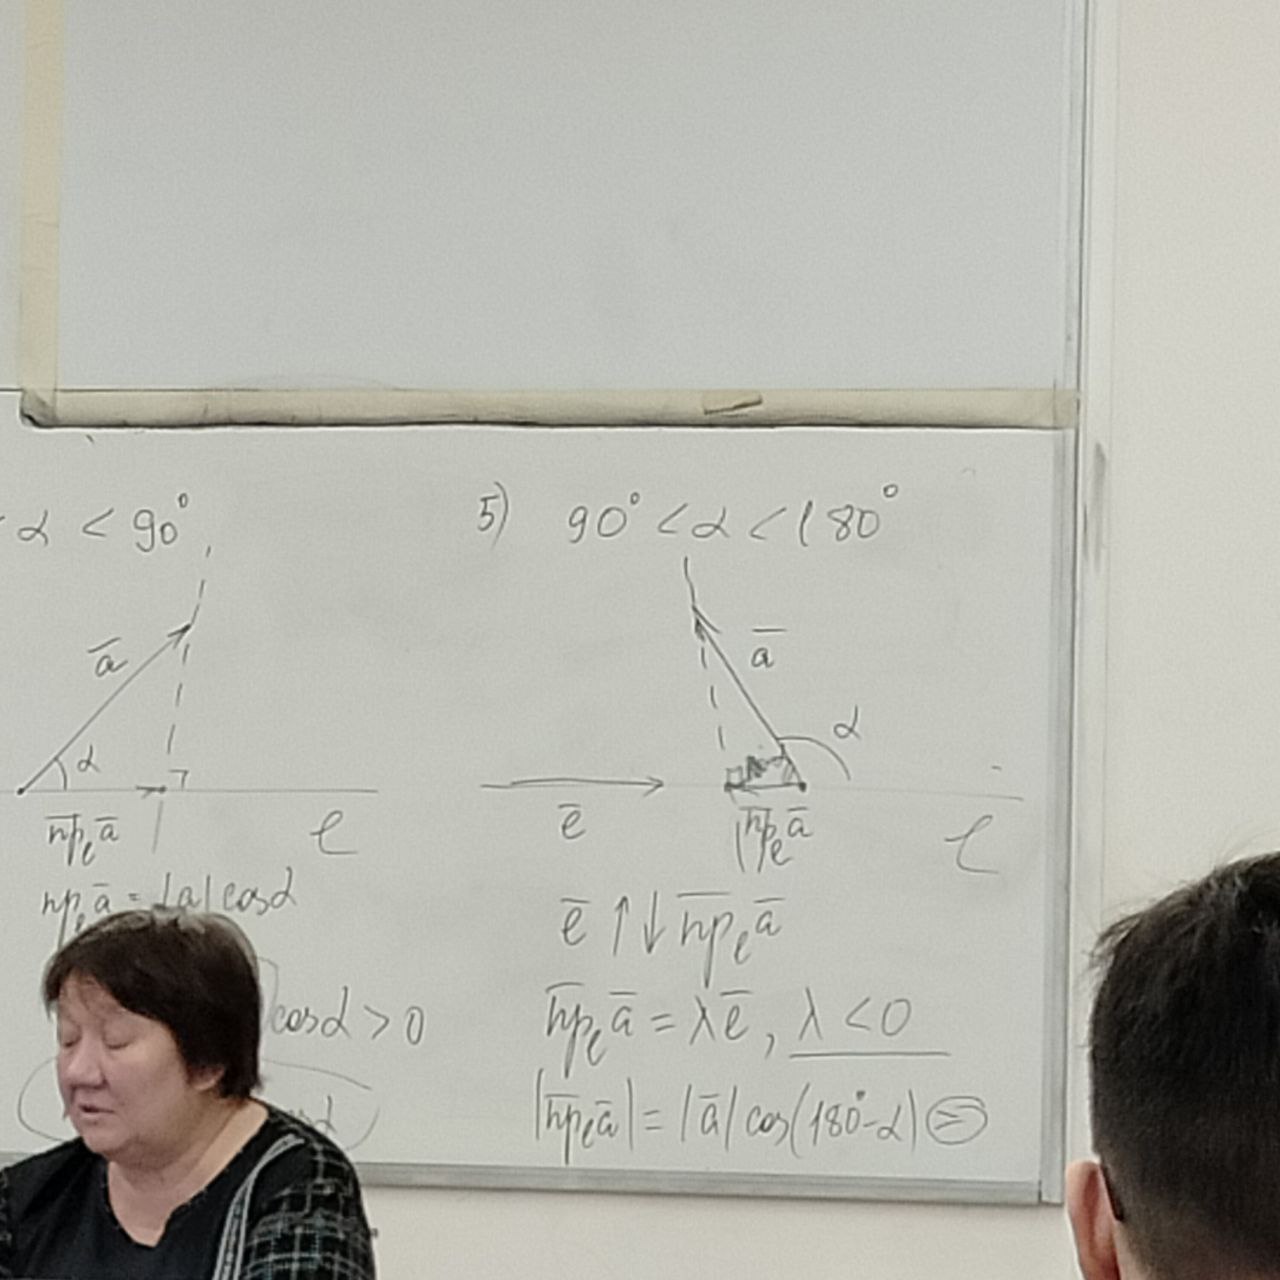 α < 90°
a̅
α
п̅р̅ₑ a̅
ℓ
прₑ a̅ = |a̅| cosα
cosα > 0
5) 90° < α < 180°
a̅
α
e̅
п̅р̅ₑ a̅
ℓ
e̅ ↑↓ п̅р̅ₑ a̅
п̅р̅ₑ a̅ = λe̅, λ < 0
|п̅р̅ₑ a̅| = |a̅| cos(180°-α) ⊜